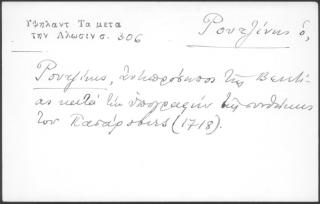 Υψηλαντ Τα μετα
την Αλωσιν σ. 306
Ρουτζίνης ὁ,
Ρουτζίνης, ἀντιπρόσωπος τῆς Βενετί-
ας κατά τήν ὑπογραφήν τῆς συνθήκης
του Πασάροβιτς (1718).